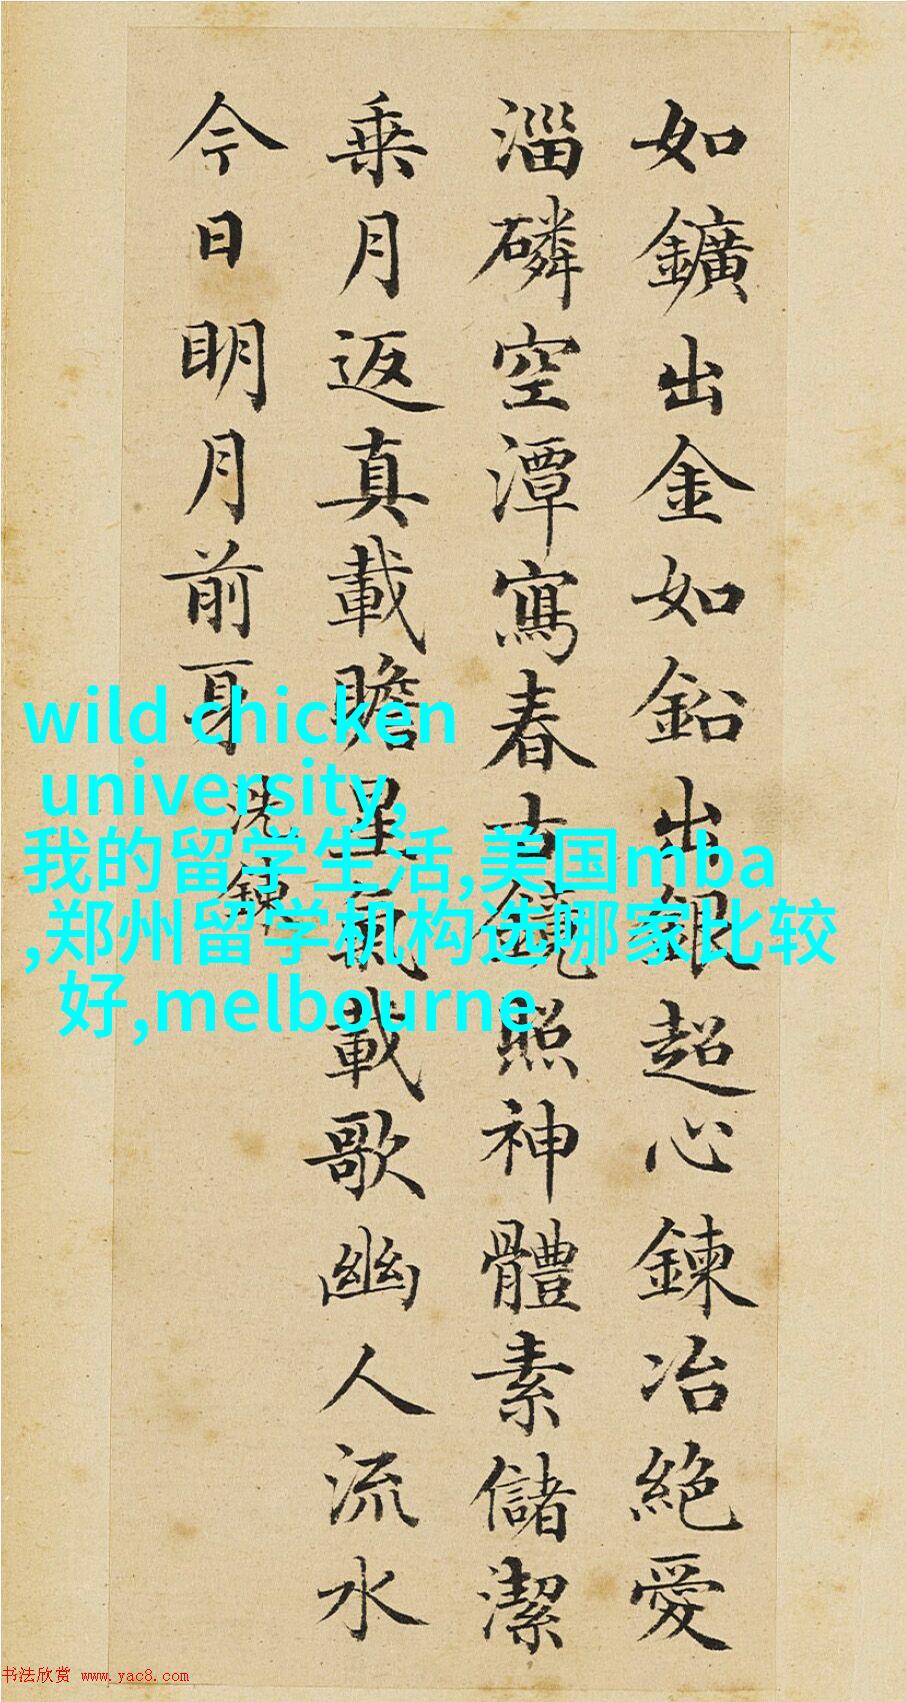 如鑛出金如鉛出銀超心鍊冶絶愛
淄磷空潭寫春古鏡照神體素儲潔
乘月返真載瞻星氣載歌幽人流水
今日明月前身
洗鍊
wild chicken
university,
我的留学生活,美国mba
,郑州留学机构选哪家比较
好,melbourne
书法欣赏 www.yac8.com